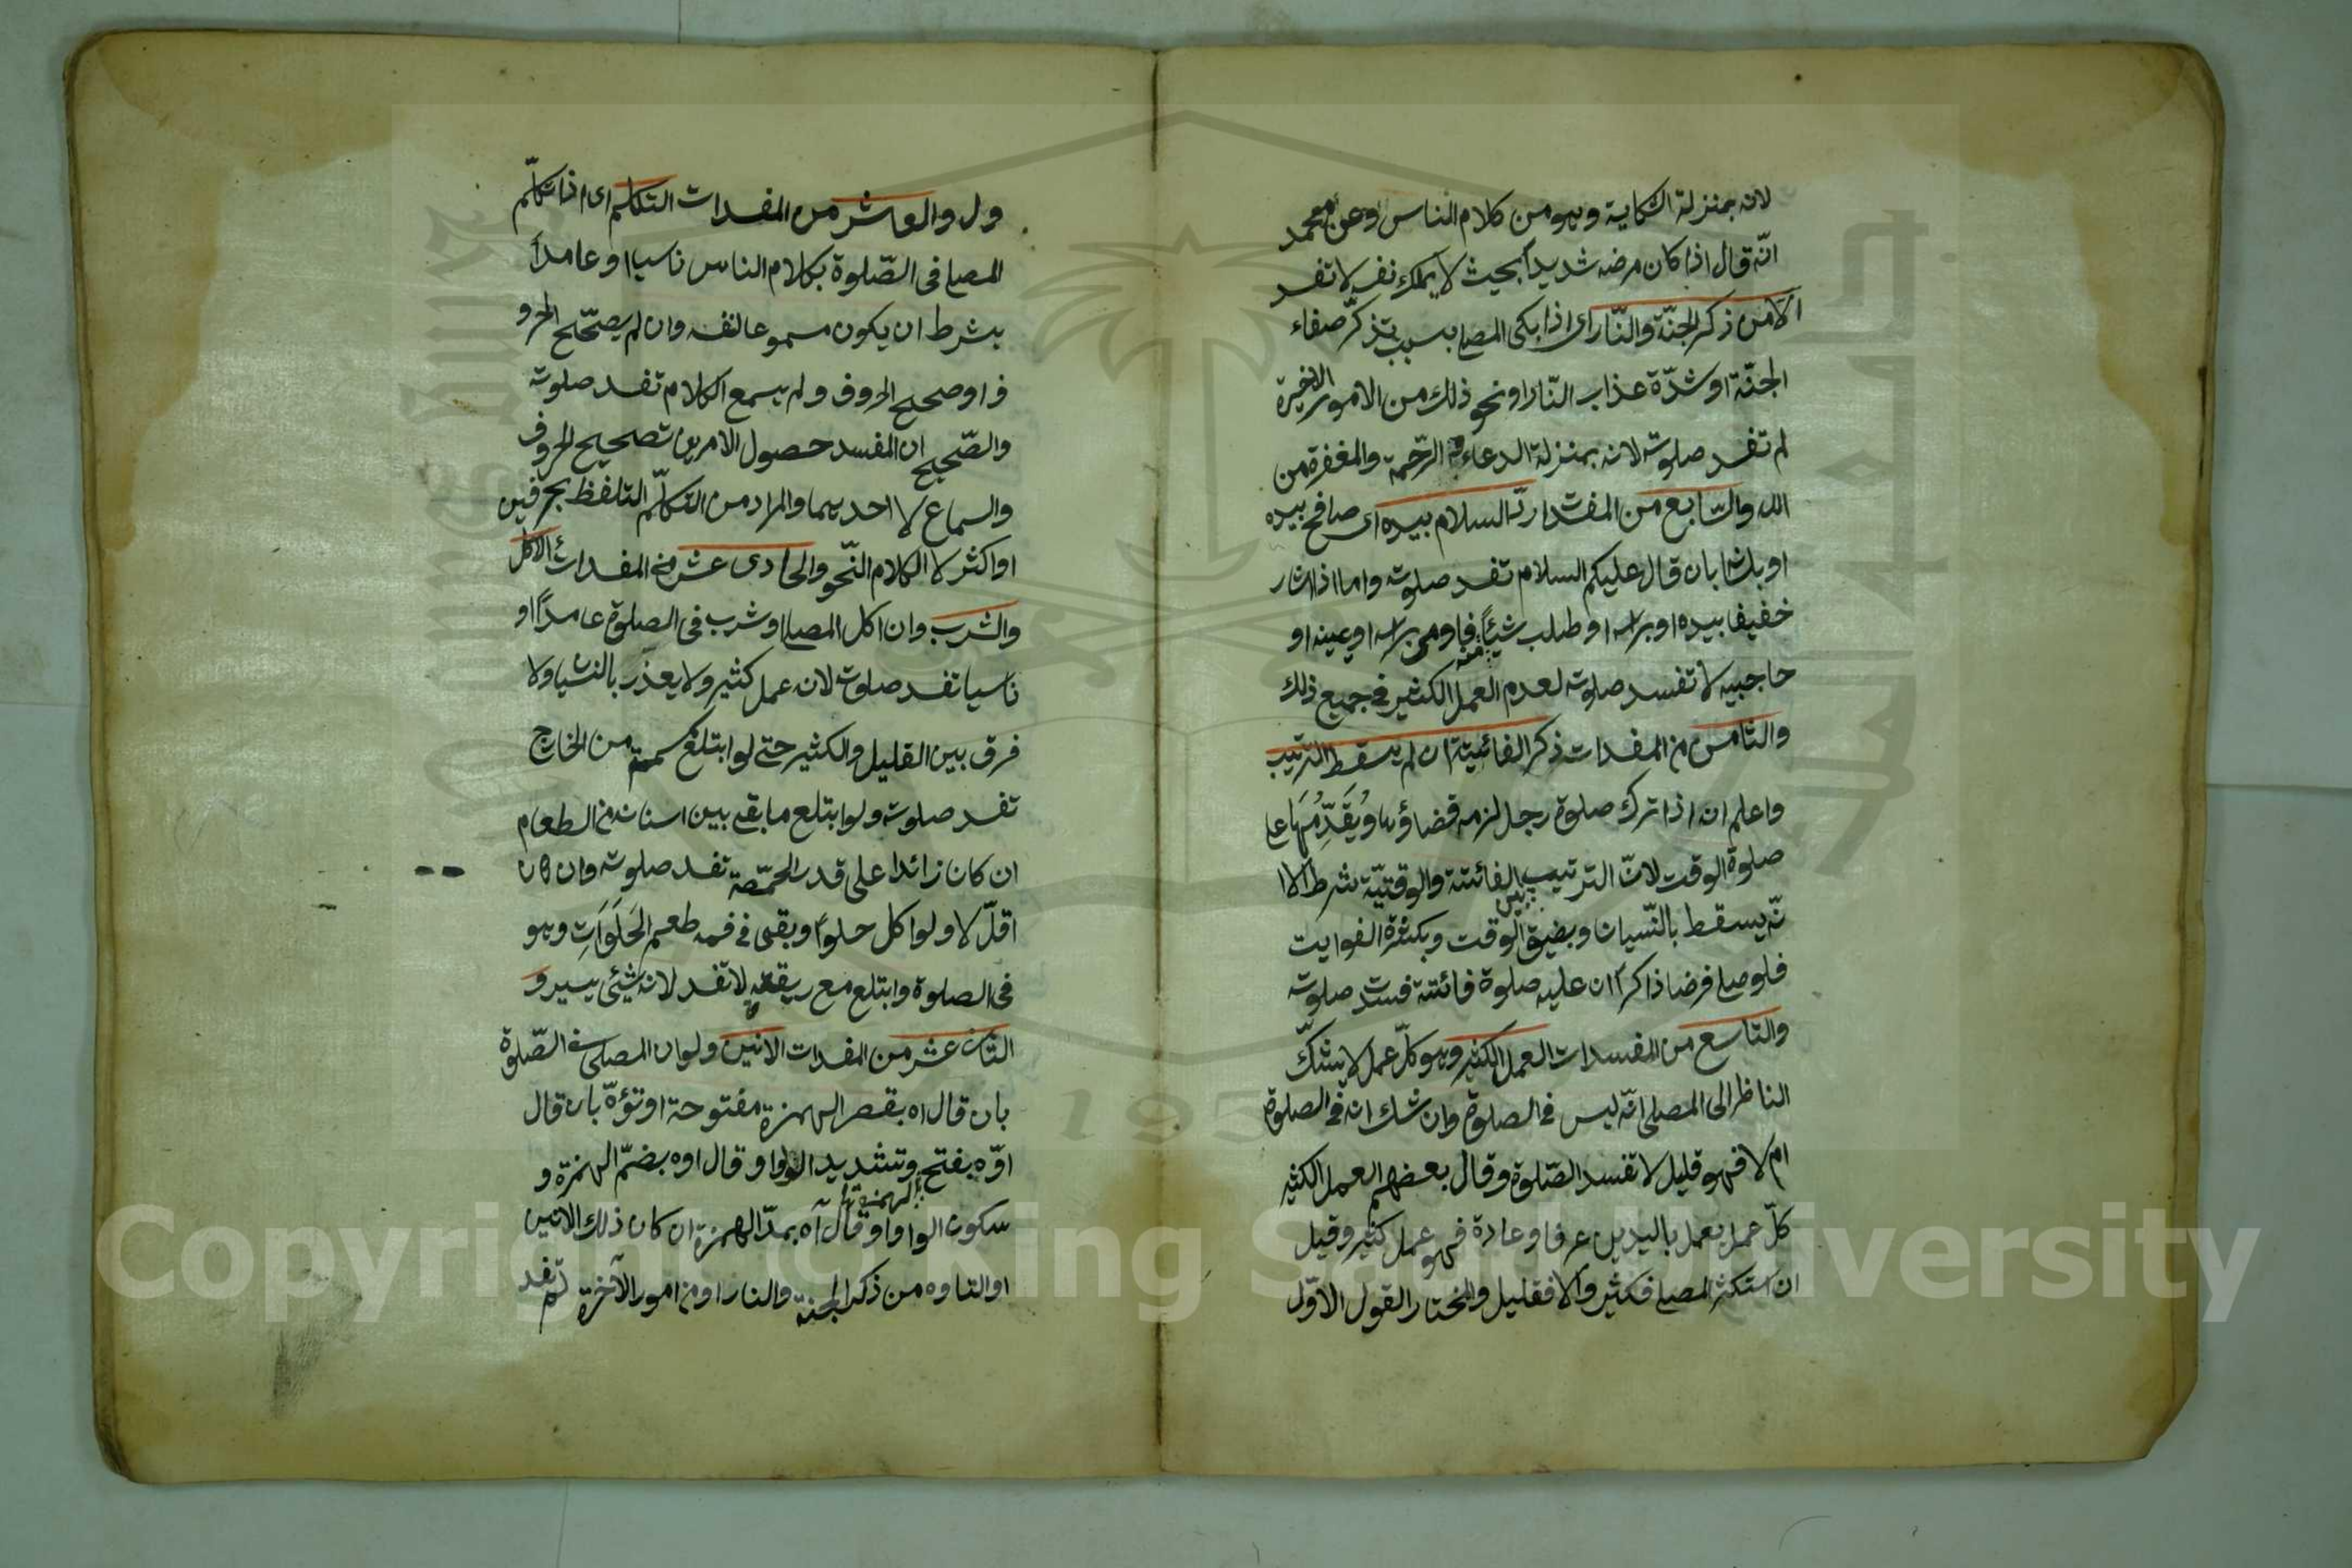 لانه بمنزلة الشكاية وهو من كلام الناس وعن محمد
انّه قال اذا كان مرضه شديداً بحيث لا يملك نفسه لا تفسد
الا من ذكر الجنّة والنّار اى اذا بكى المصلى بسبب تذكّر صفاء
الجنّة او شدّة عذاب النّار او نحو ذلك من الامور الاخيرة
لم تفسد صلوته لانه بمنزلة الدعاء الرّحمة والمغفرة من
الله والسّابع من المفسدات ردّ السلام بيده اى صافح بيده
او بلسا بان قال عليكم السلام تفسد صلوته واما اذا اشار
خفيفا بيده او براسه او طلب منه شيئاً فاومى براسه او بعينه او
حاجبيه لا تفسد صلوته لعدم العمل الكثير فى جميع ذلك
والثامن من المفسدات ذكر الفائتية ان لم يسقط الترتيب
واعلم انه اذا ترك صلوة رجل لزمه قضاؤها وَيُقَدِّمُهَا على
صلوة الوقت لانّ الترتيب بين الفائتة والوقتيّة شرط الا ا
نّه يسقط بالنّسيان وبضيق الوقت وبكثرة الفوايت
فلو صلى فرضا ذاكرا ان عليه صلوة فائتة فسدت صلوته
والتاسع من المفسدات العمل الكثير وهو كلّ عمل لا يشكّ
الناظر الى المصلى انّه ليس فى الصلوة وان شك انه فى الصلوة
ام لا فهو قليل لا تفسد الصّلوة وقال بعضهم العمل الكثير
كلّ عمل يعمل باليدين عرفا وعادة فهو عمل كثير وقيل
ان استكثر المصلى فكثير والا فقليل والمختار القول الاوّل
ول والعاشر من المفسدات التكلم اى اذا تكلّم
المصلى فى الصّلوة بكلام الناس ناسيا او عامداً
بشرط ان يكون مسموعا لنفسه وان لم يصحّح الحرو
ف او صحيح الحروف ولم يسمع الكلام تفسد صلوته
والصّحيح ان المفسد حصول الامرين تصحيح الحروف
والسماع لا احديهما والمراد من التكلّم التلفظ بحرفين
او اكثر لا الكلام النّحو والحادى عشر من المفسدات الاكل
والشرب وان اكل المصلى او شرب فى الصلوة عامداً او
ناسيا تفسد صلوته لانه عمل كثير ولا يعذّر بالنسيا ولا
فرق بين القليل والكثير حتى لو ابتلع سمسمة من الخارج
تفسد صلوته ولو ابتلع ما بقى بين اسنانه من الطعام
ان كان زائدا على قدر الحمّصة تفسد صلوته وان كان
اقلّ لا ولو اكل حلواً وبقى فى فمه طعم الحَلَوَاتِ وهو
فى الصلوة وابتلع مع ريقه لا تفسد لانه شيئى يسير و
الثانى عشر من المفسدات الانين ولو ان المصلى فى الصّلوة
بان قال اه بقصر الهمزة مفتوحة او تؤّه بان قال
اوّه بفتح الهمزة وتشديد الواو او قال اوه بضمّ الهمزة و
سكون الواو او قال آه بمدّ الهمزة ان كان ذلك الانين
او التاوه من ذكر الجنة والنار او من امور الآخرة لم تفسد
Copyright © King Saud University